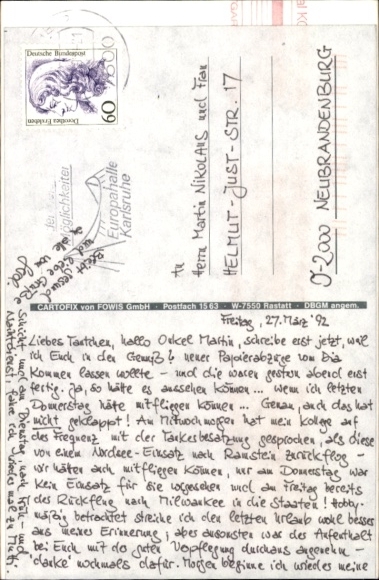 Deutsche Bundespost
60
Dorothea Erxleben
Europahalle
Karlsruhe
An
Herrn Martin NIKOLAUS und Frau
HELMUT-JUST-STR. 17
O-2000 NEUBRANDENBURG
CARTOFIX von FOWIS GmbH · Postfach 1563 · W-7550 Rastatt · DBGM angem.
Freitag, 27. März '92
Liebes Tantchen, hallo Onkel Martin, schreibe erst jetzt, weil
ich Euch in den Genuß neuer Papierabzüge vom Dia
kommen lassen wollte - und die waren gestern abend erst
fertig. Ja, so hätte es aussehen können... wenn ich letzten
Donnerstag hätte mitfliegen können... Genau, auch das hat
nicht geklappt! Am Mittwochmorgen hat mein Kollege auf
des Frequenz mit der Tankerbesatzung gesprochen, als diese
von einem Nordsee-Einsatz nach Ramstein zurückflog -
wir hätten auch mitfliegen können, nur am Donnerstag war
kein Einsatz für sie vorgesehen und am Freitag bereits
des Rückflug nach Milwaukee in die Staaten! Hobby-
mäßig betrachtet streiche ich den letzten Urlaub wohl besser
aus meines Erinnerung, aber ansonsten war des Aufenthalt
bei Euch mit do guten Vopflegung durchaus angenehm -
'danke' nochmals dafür. Morgen beginne ich wieder meine